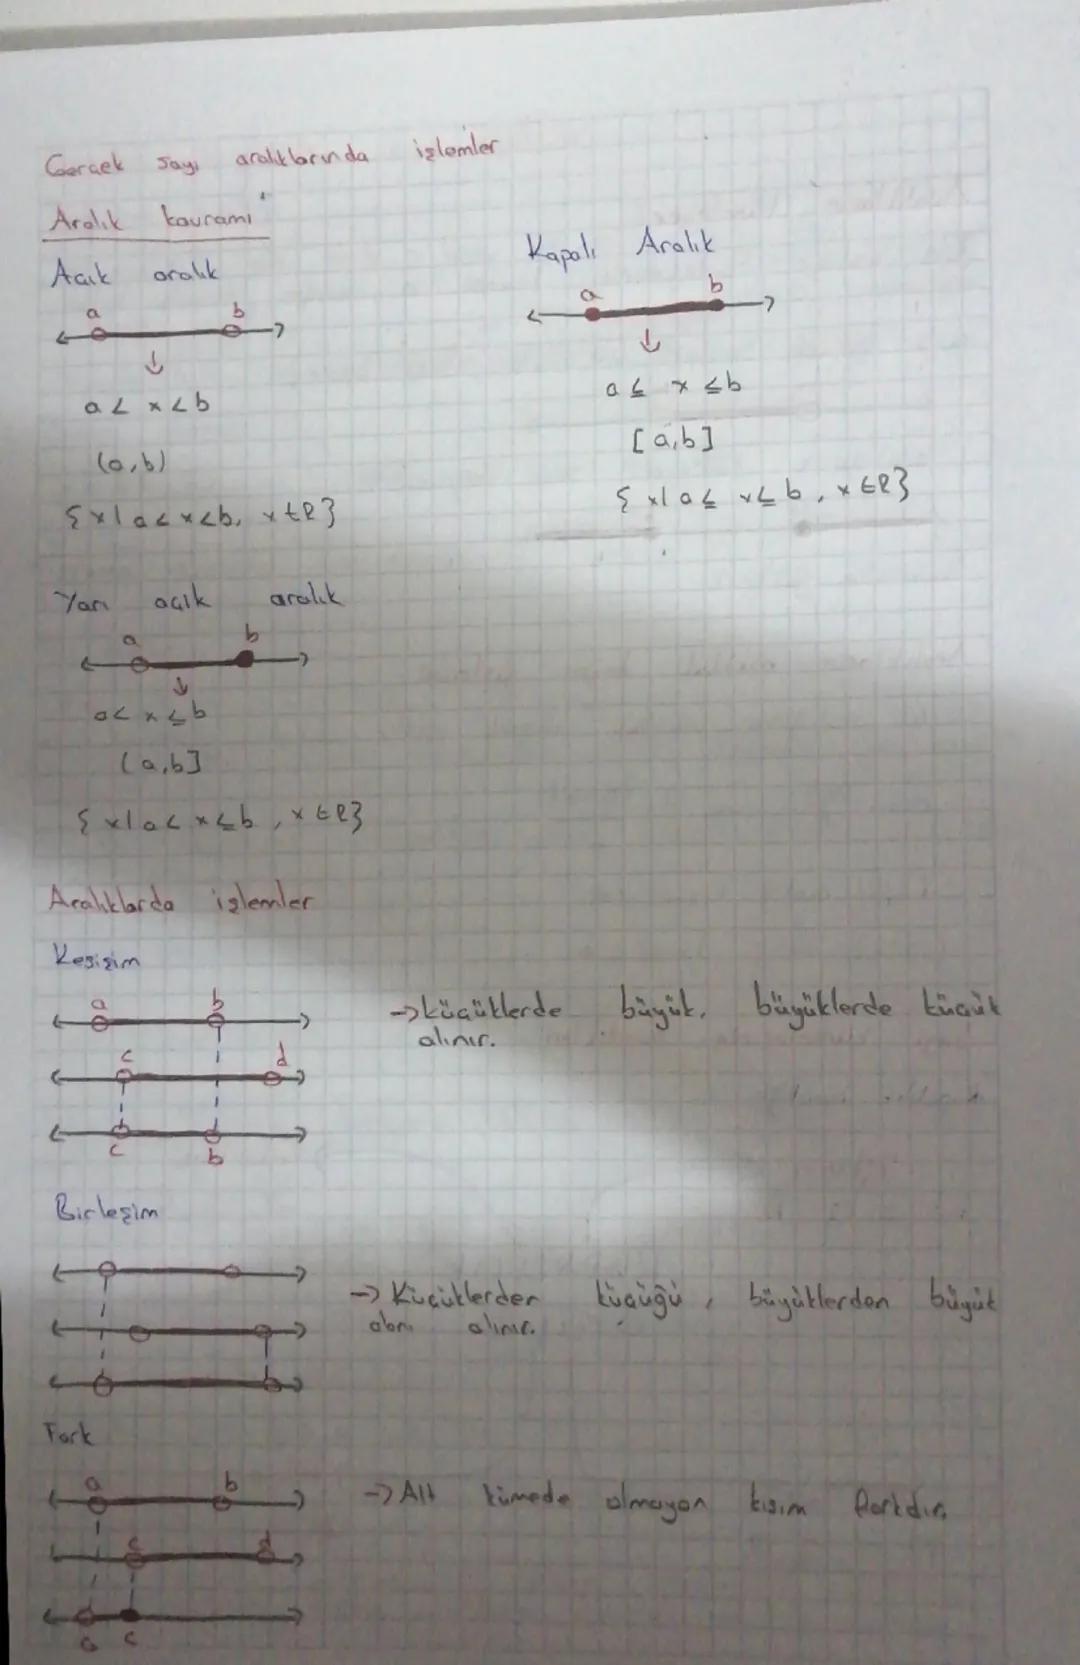 Gerçek sayı aralıklarında işlemler
Aralık kavramı
Açık aralık
a b
a < x < b
(a,b)
{x| a < x < b, x ∈ R}
Kapalı Aralık
a b
a ≤ x ≤ b
[a,b]
{x| a ≤ x ≤ b, x ∈ R}
Yarı açık aralık
a b
a < x ≤ b
(a,b]
{x| a < x ≤ b, x ∈ R}
Aralıklarda işlemler
Kesişim
a b
c d
c b
→ küçüklerde büyük, büyüklerde küçük
alınır.
Birleşim
→ Küçüklerden küçüğü, büyüklerden büyük
olanı alınır.
Fark
a b
c d
a c
→ Alt kümede olmayan kısım farkdır.